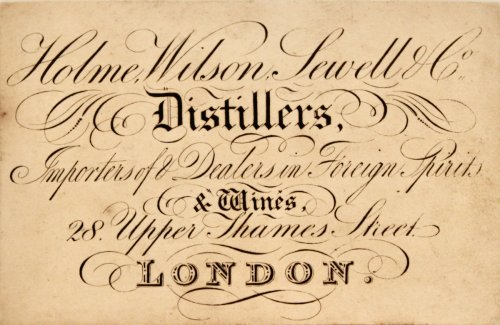 Holme, Wilson, Sewell & Co.
Distillers,
Importers of & Dealers in Foreign Spirits
& Wines,
28. Upper Thames Street
LONDON.